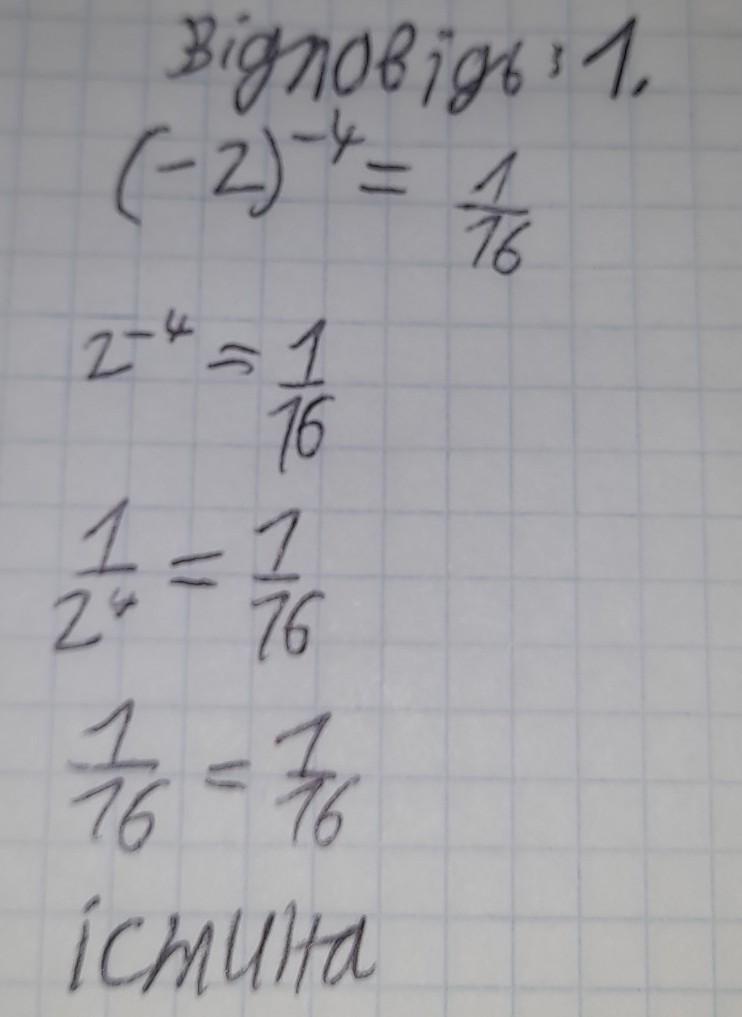 Відповідь: 1.
(-2)^-4 = 1/16
2^-4 = 1/16
1/2^4 = 1/16
1/16 = 1/16
істина